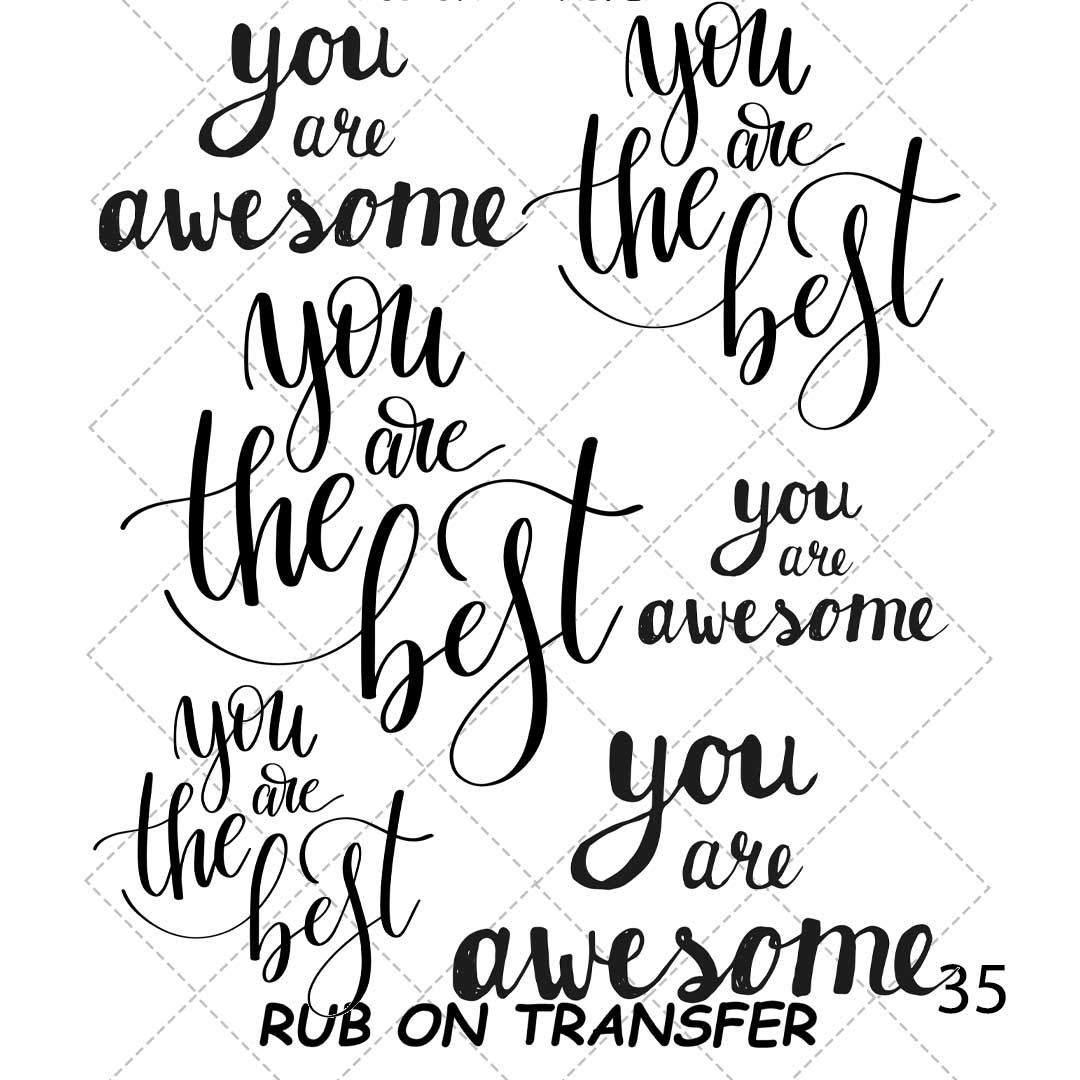 you
are
awesome
you
are
the
best
you
are
the
best
you
are
awesome
you
are
the
best
you
are
awesome
35
RUB ON TRANSFER